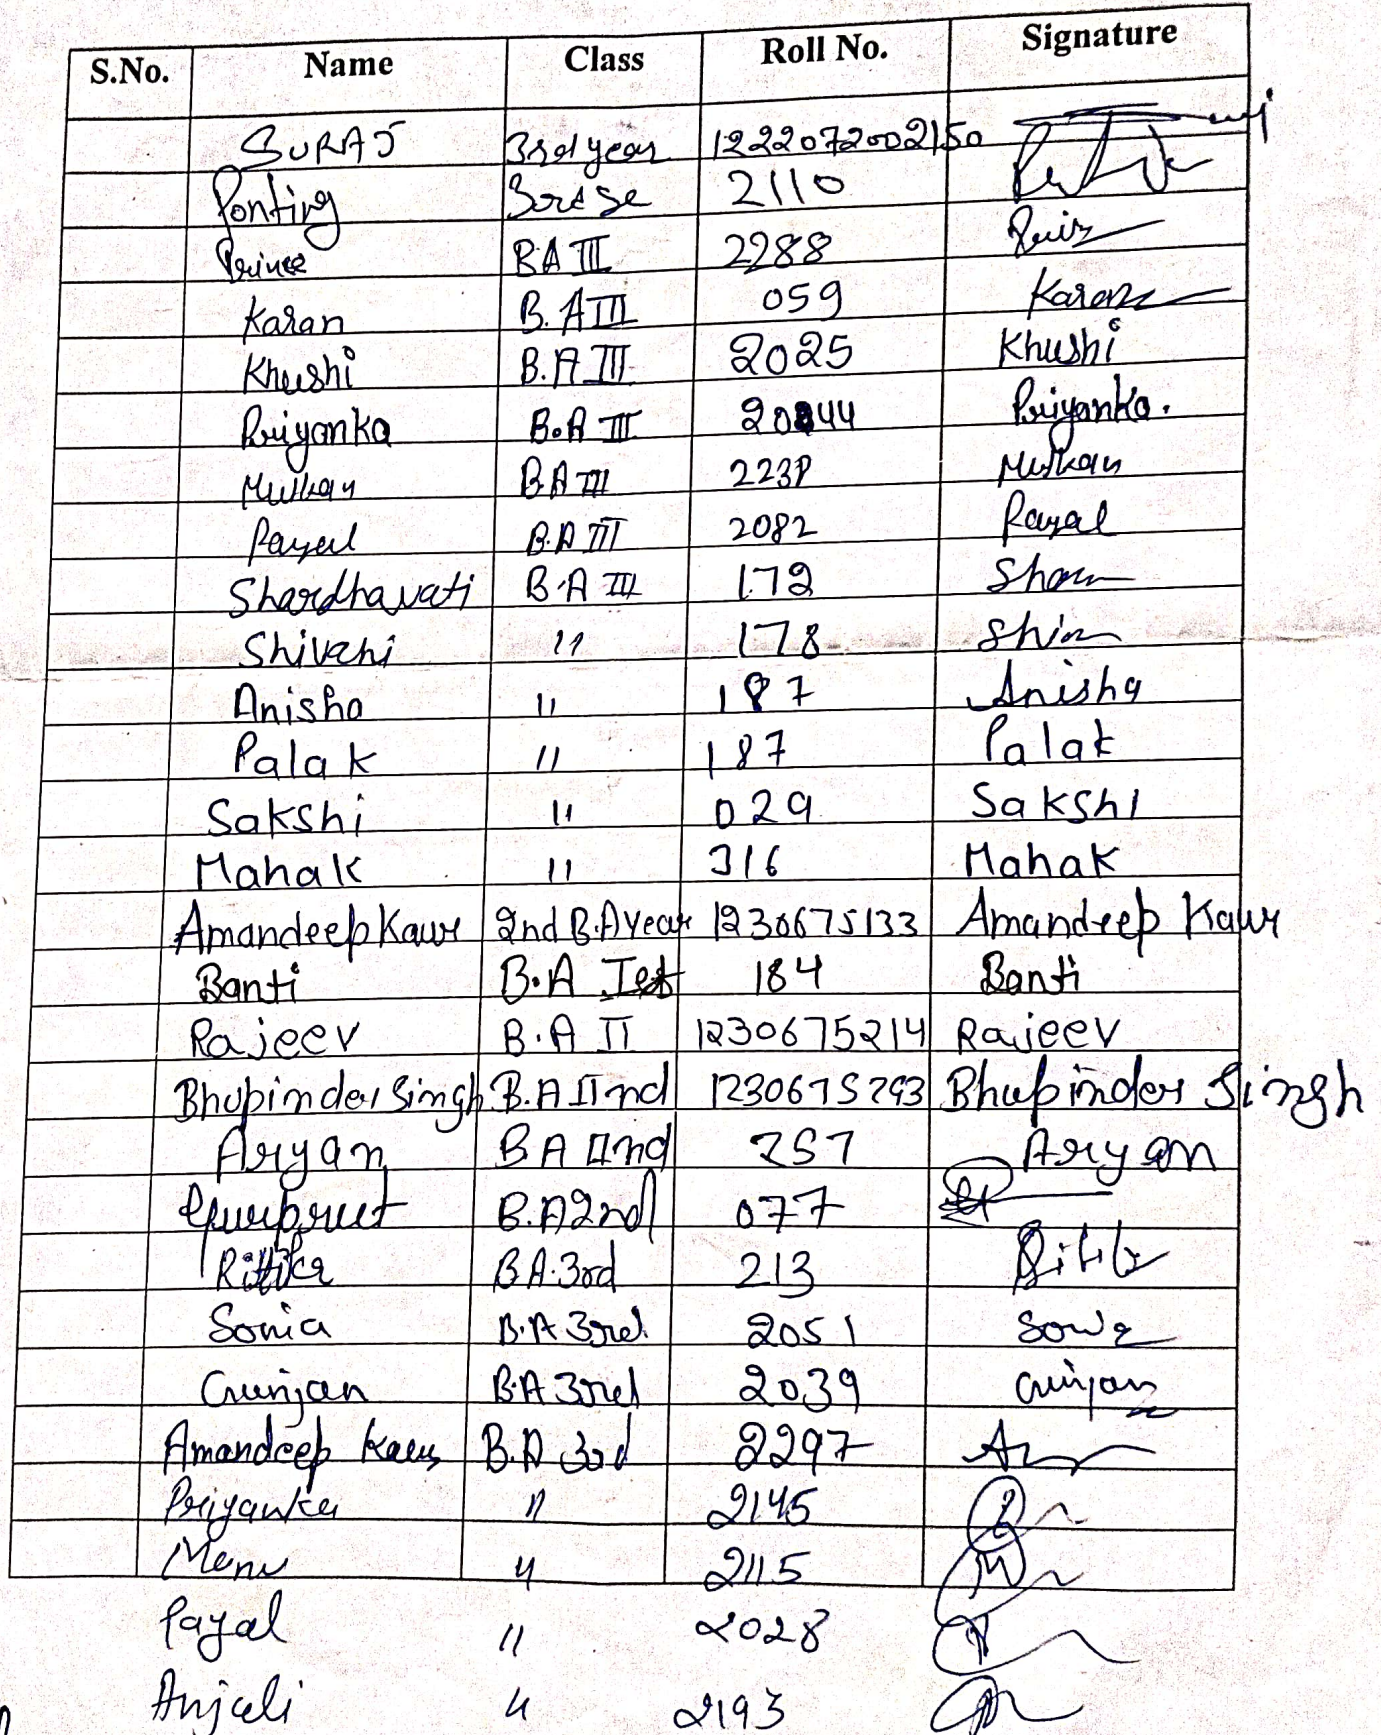 S.No. Name Class Roll No. Signature
SURAJ 3rd year 1222072002150
Ponting 2110
Prince B.A III 2288
Karan B.A III 059 Karan
Khushi B.A III 2025 Khushi
Priyanka B.A III Priyanka.
Muskan B.A III Muskan
Payal B.A III 2082 Payal
Shardhavati B.A III 172
Shivani 11 178
Anisha 11 187 Anisha
Palak 11 187 Palak
Sakshi 11 029 Sakshi
Mahak 11 316 Mahak
Amandeep Kaur 2nd B.A year 1230675133 Amandeep Kaur
Banti B.A Ist 184 Banti
Rajeev B.A II 1230675214 Rajeev
Bhupinder Singh B.A IInd 1230675293 Bhupinder Singh
Aryan BA IInd 257 Aryan
Gurpreet B.A 2nd 077
Ritika B.A. 3rd 213
Sonia B.A 3rd. 2051
Gunjan B.A 3rd 2039 Gunjan
Amandeep Kaur B.A 3rd 2297
Priyanka 11 2145
Menu 11 2115
Payal 11 2028
Anjali 11 2193